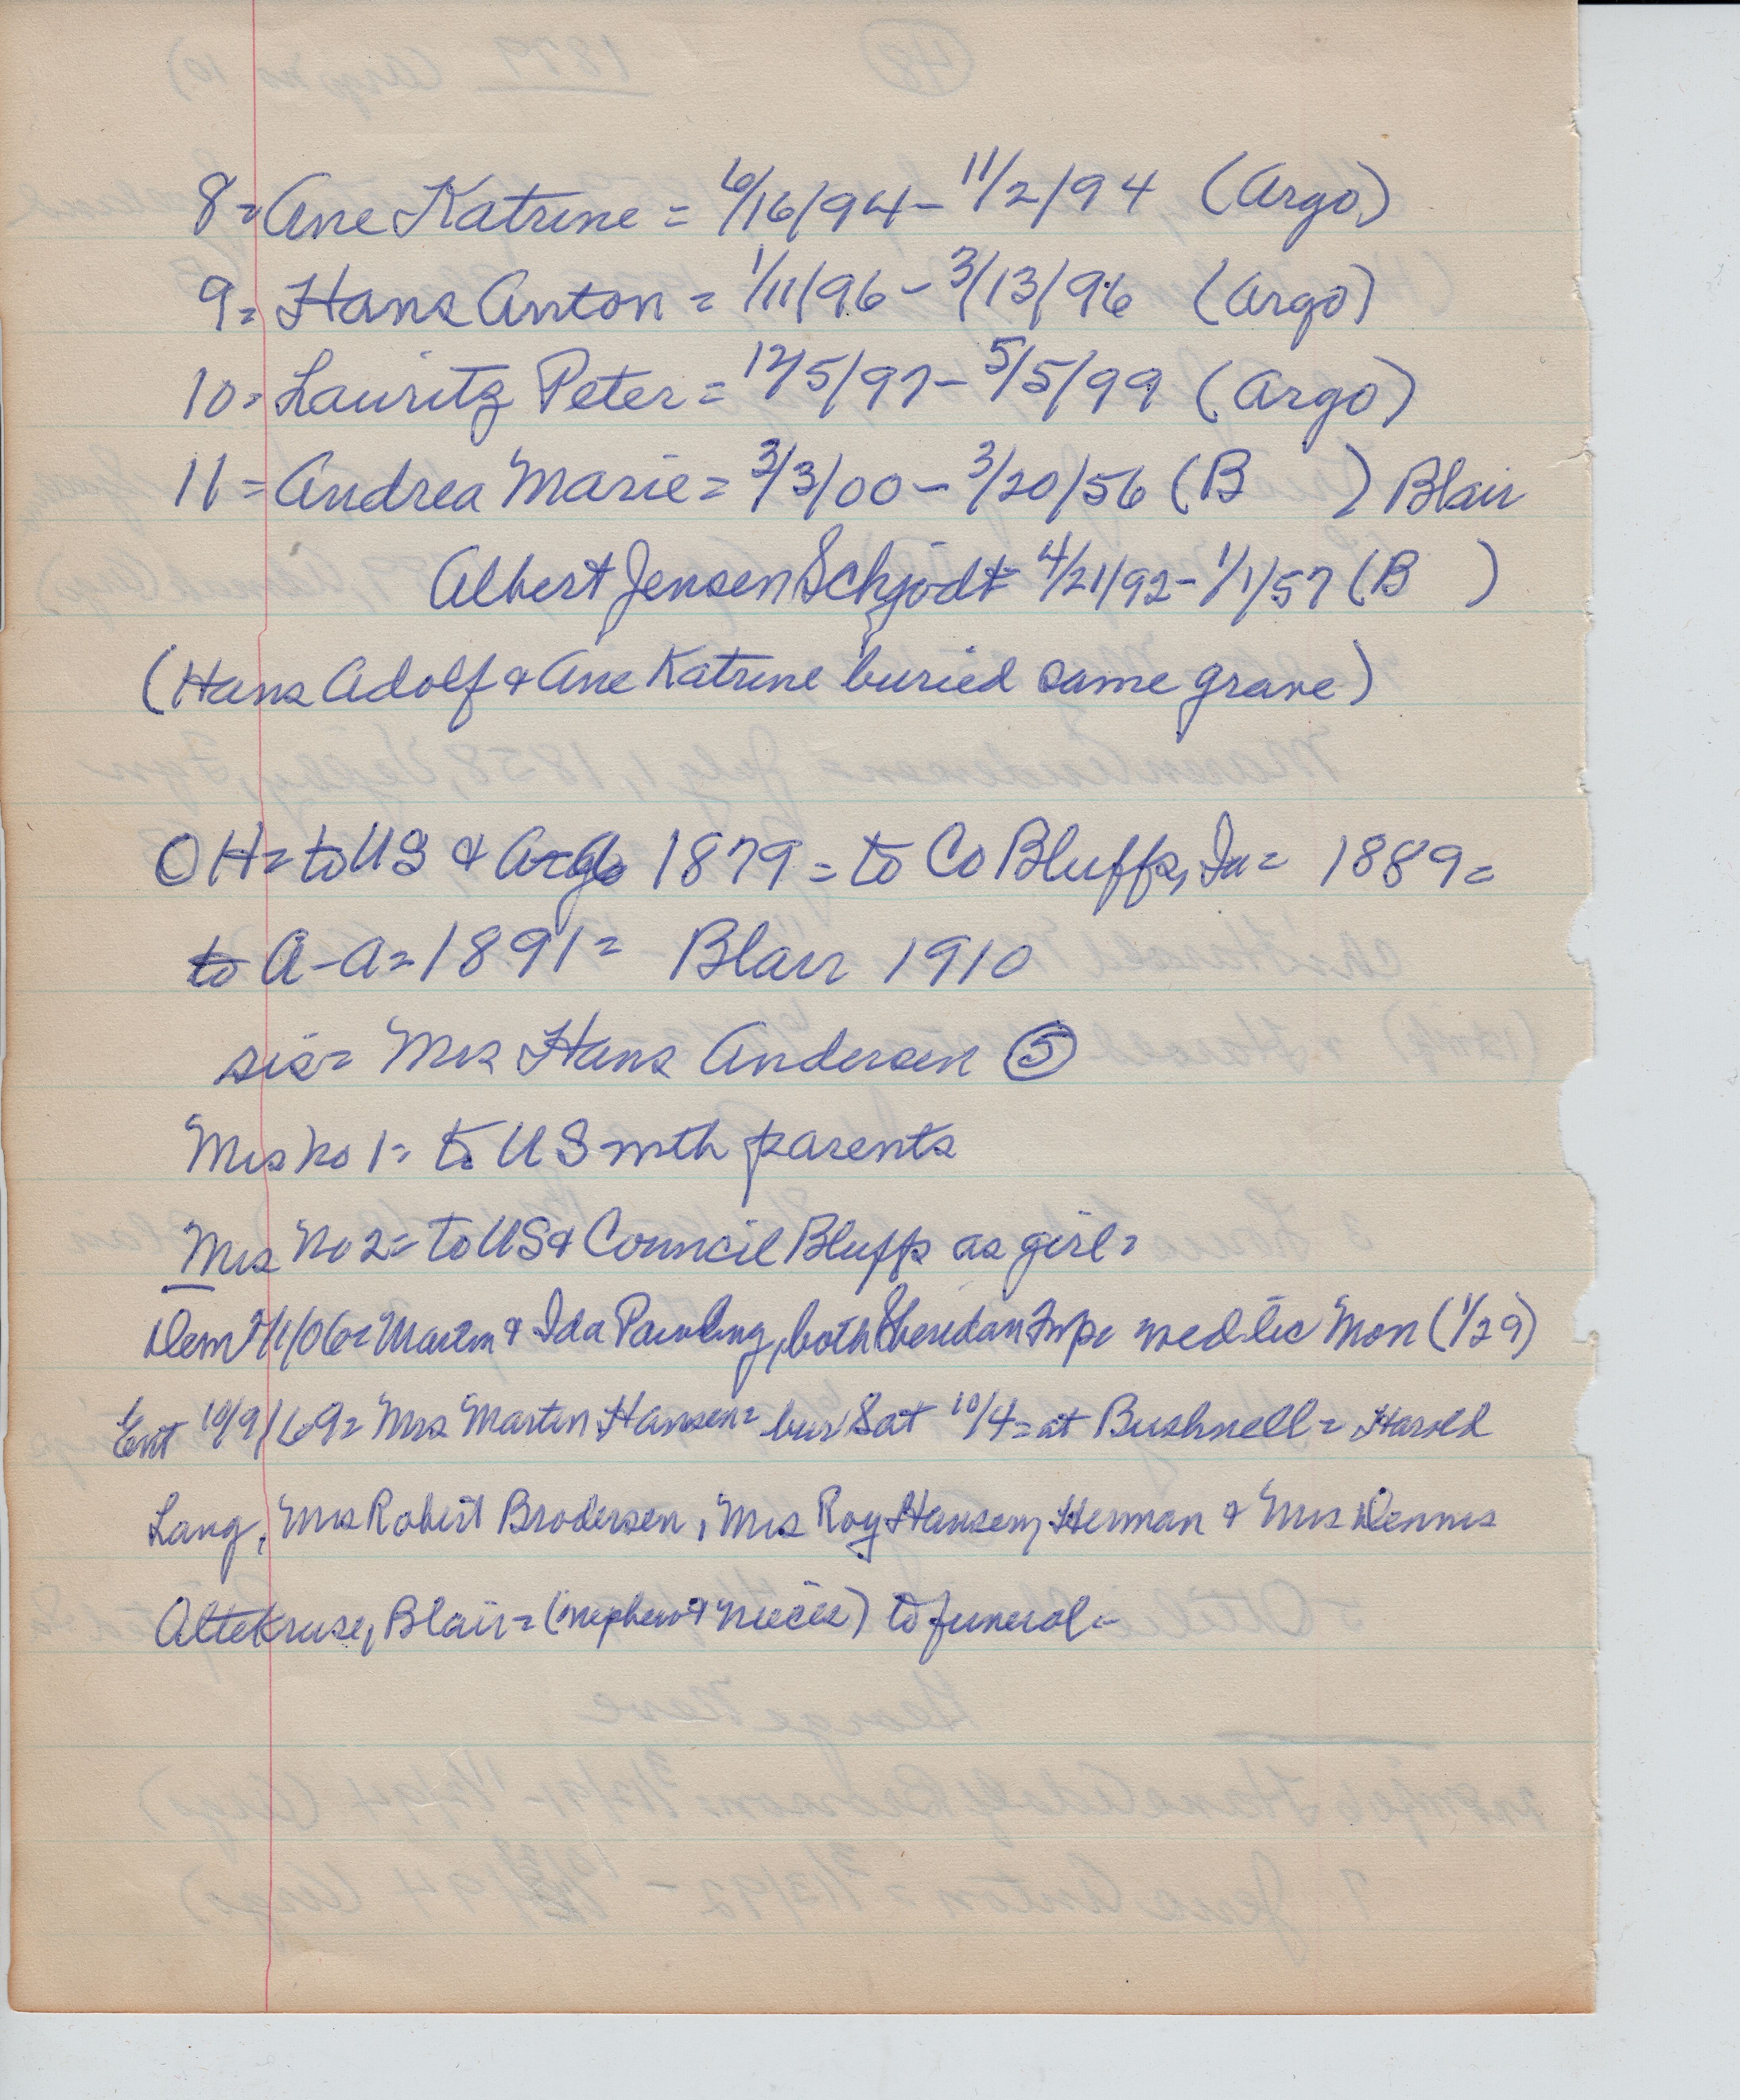 8= Ane Katrine = 6/16/94 - 11/2/94 (Argo)
9= Hans Anton = 1/11/96 - 3/13/96 (Argo)
10= Lauritz Peter = 12/5/97 - 5/5/99 (Argo)
11= Andrea Marie = 3/3/00 - 3/20/56 (B ) Blair
Albert Jensen Schjodt = 4/21/92 - 1/1/57 (B )
(Hans Adolf & Ane Katrine buried same grave)
OH= to US & Argo 1879 = to Co Bluffs, Ia = 1889 =
to A-a= 1891 = Blair 1910
sis= Mrs Hans Andersen (5)
Mrs No 1= to US with parents
Mrs No 2= to US & Council Bluffs as girl=
Dem 2/1/06= Martin & Ida Pawling, both Sheridan Twp= wed lic Mon (1/29)
Ent 10/9/69= Mrs Martin Hansen= bur Sat 10/4= at Bushnell = Harold
Lang, Mrs Robert Brodersen, Mrs Roy Hansen, Herman & Mrs Dennis
Altekruse, Blair= (nephew & nieces) to funeral=